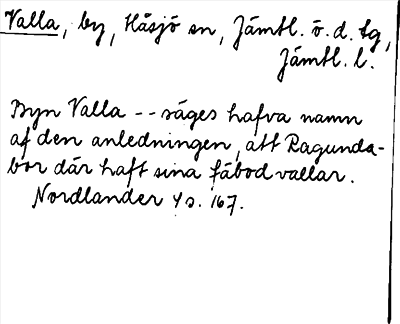 Valla, by, Håsjö sn, Jämtl. ö. d. tg,
Jämtl. l.
Byn Valla -- säges hafva namn
af den anledningen, att Ragunda-
bor där haft sina fäbodvallar.
Nordlander 4 s. 167.